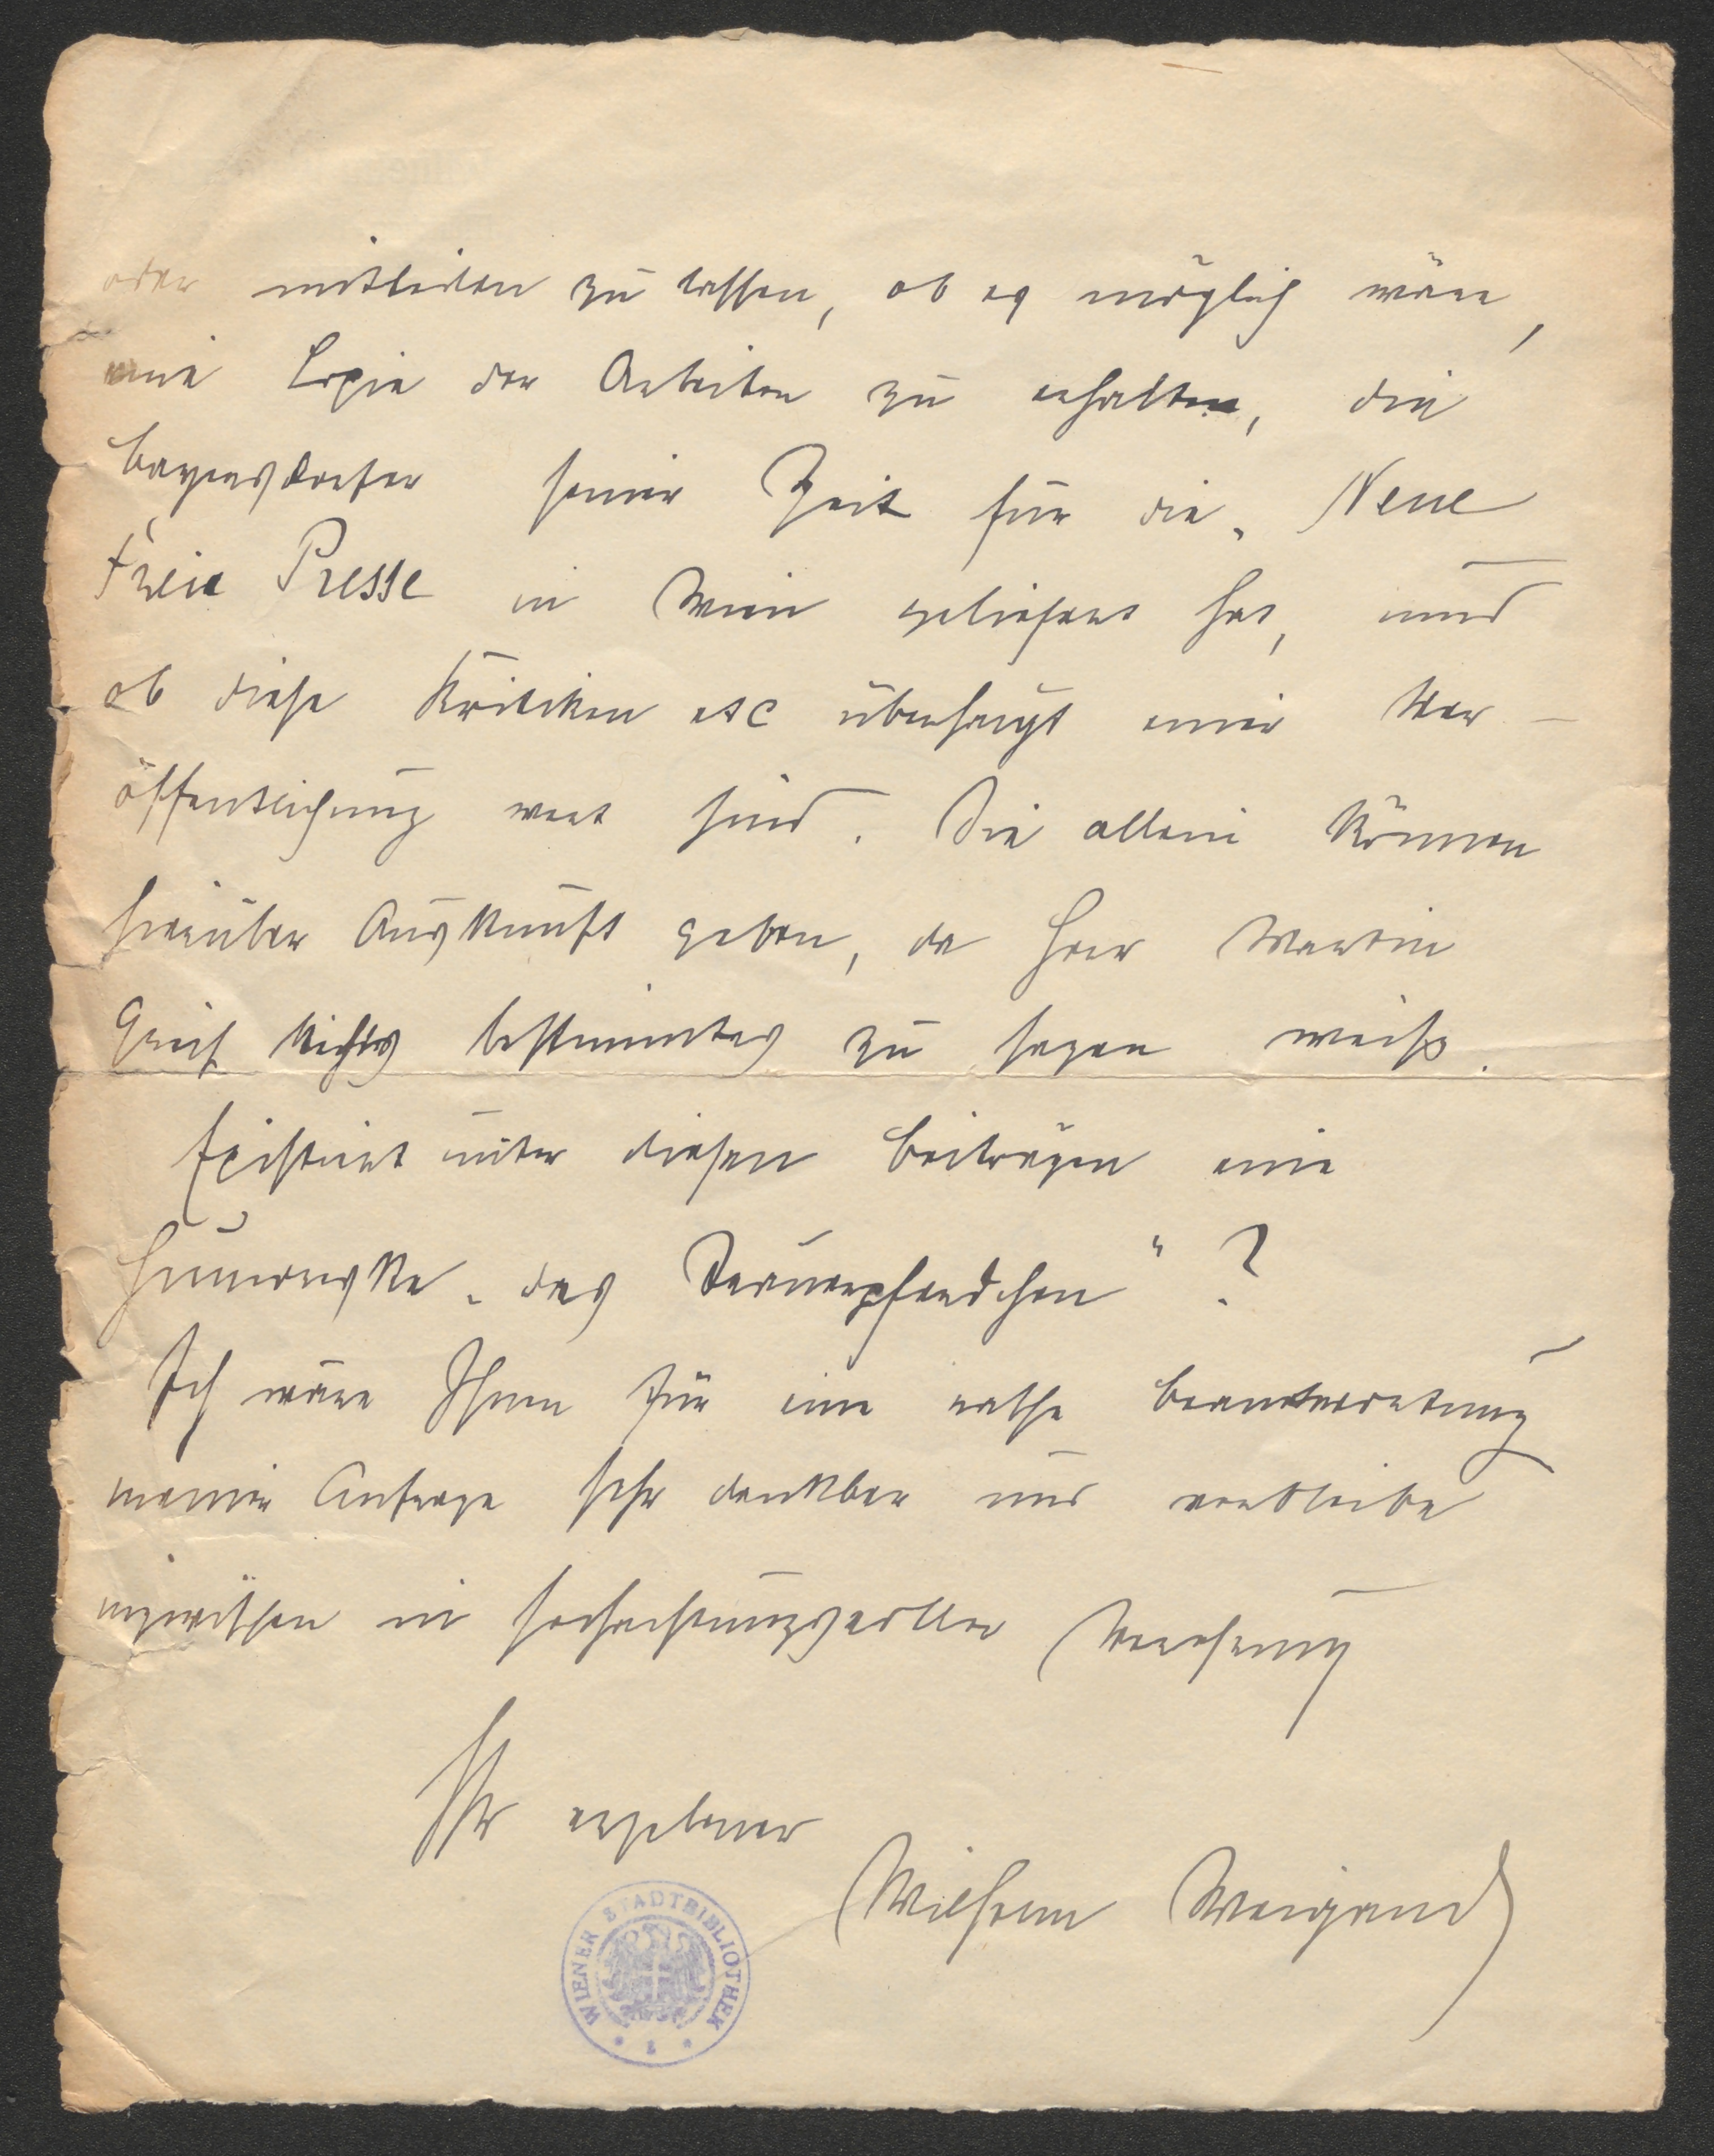 oder mitteilen zu lassen, ob es möglich wäre,
eine Copie der Arbeiten zu erhalten, die
Bayersdorfer seiner Zeit für die „Neue
Freie Presse in Wien geliefert hat, und
ob diese Kritiken etc überhaupt einer Ver-
öffentlichung wert sind. Sie allein können
hierüber Auskunft geben, da Herr Martin
Greif nichts bestimmtes zu sagen weiß.
Existiert unter diesen Beiträgen eine
Humoreske „das
“?
Ich wäre Ihnen für eine rasche Beantwortung
meiner Anfrage sehr dankbar und verbleibe
inzwischen in hochachtungsvoller Verehrung
Ihr ergebener
Wilhelm Weigand
WIENER STADTBIBLIOTHEK